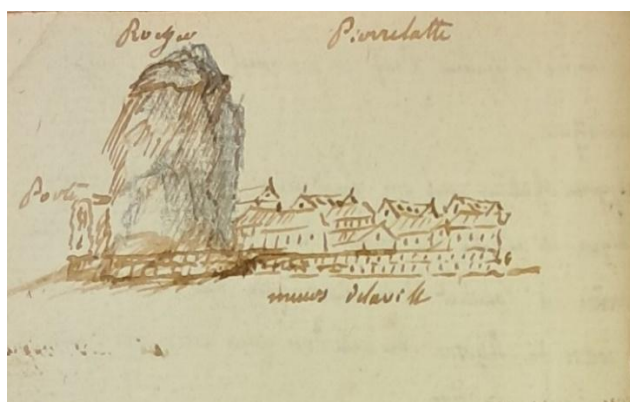 Rocher Pierrelatte
Porte
murs delaville